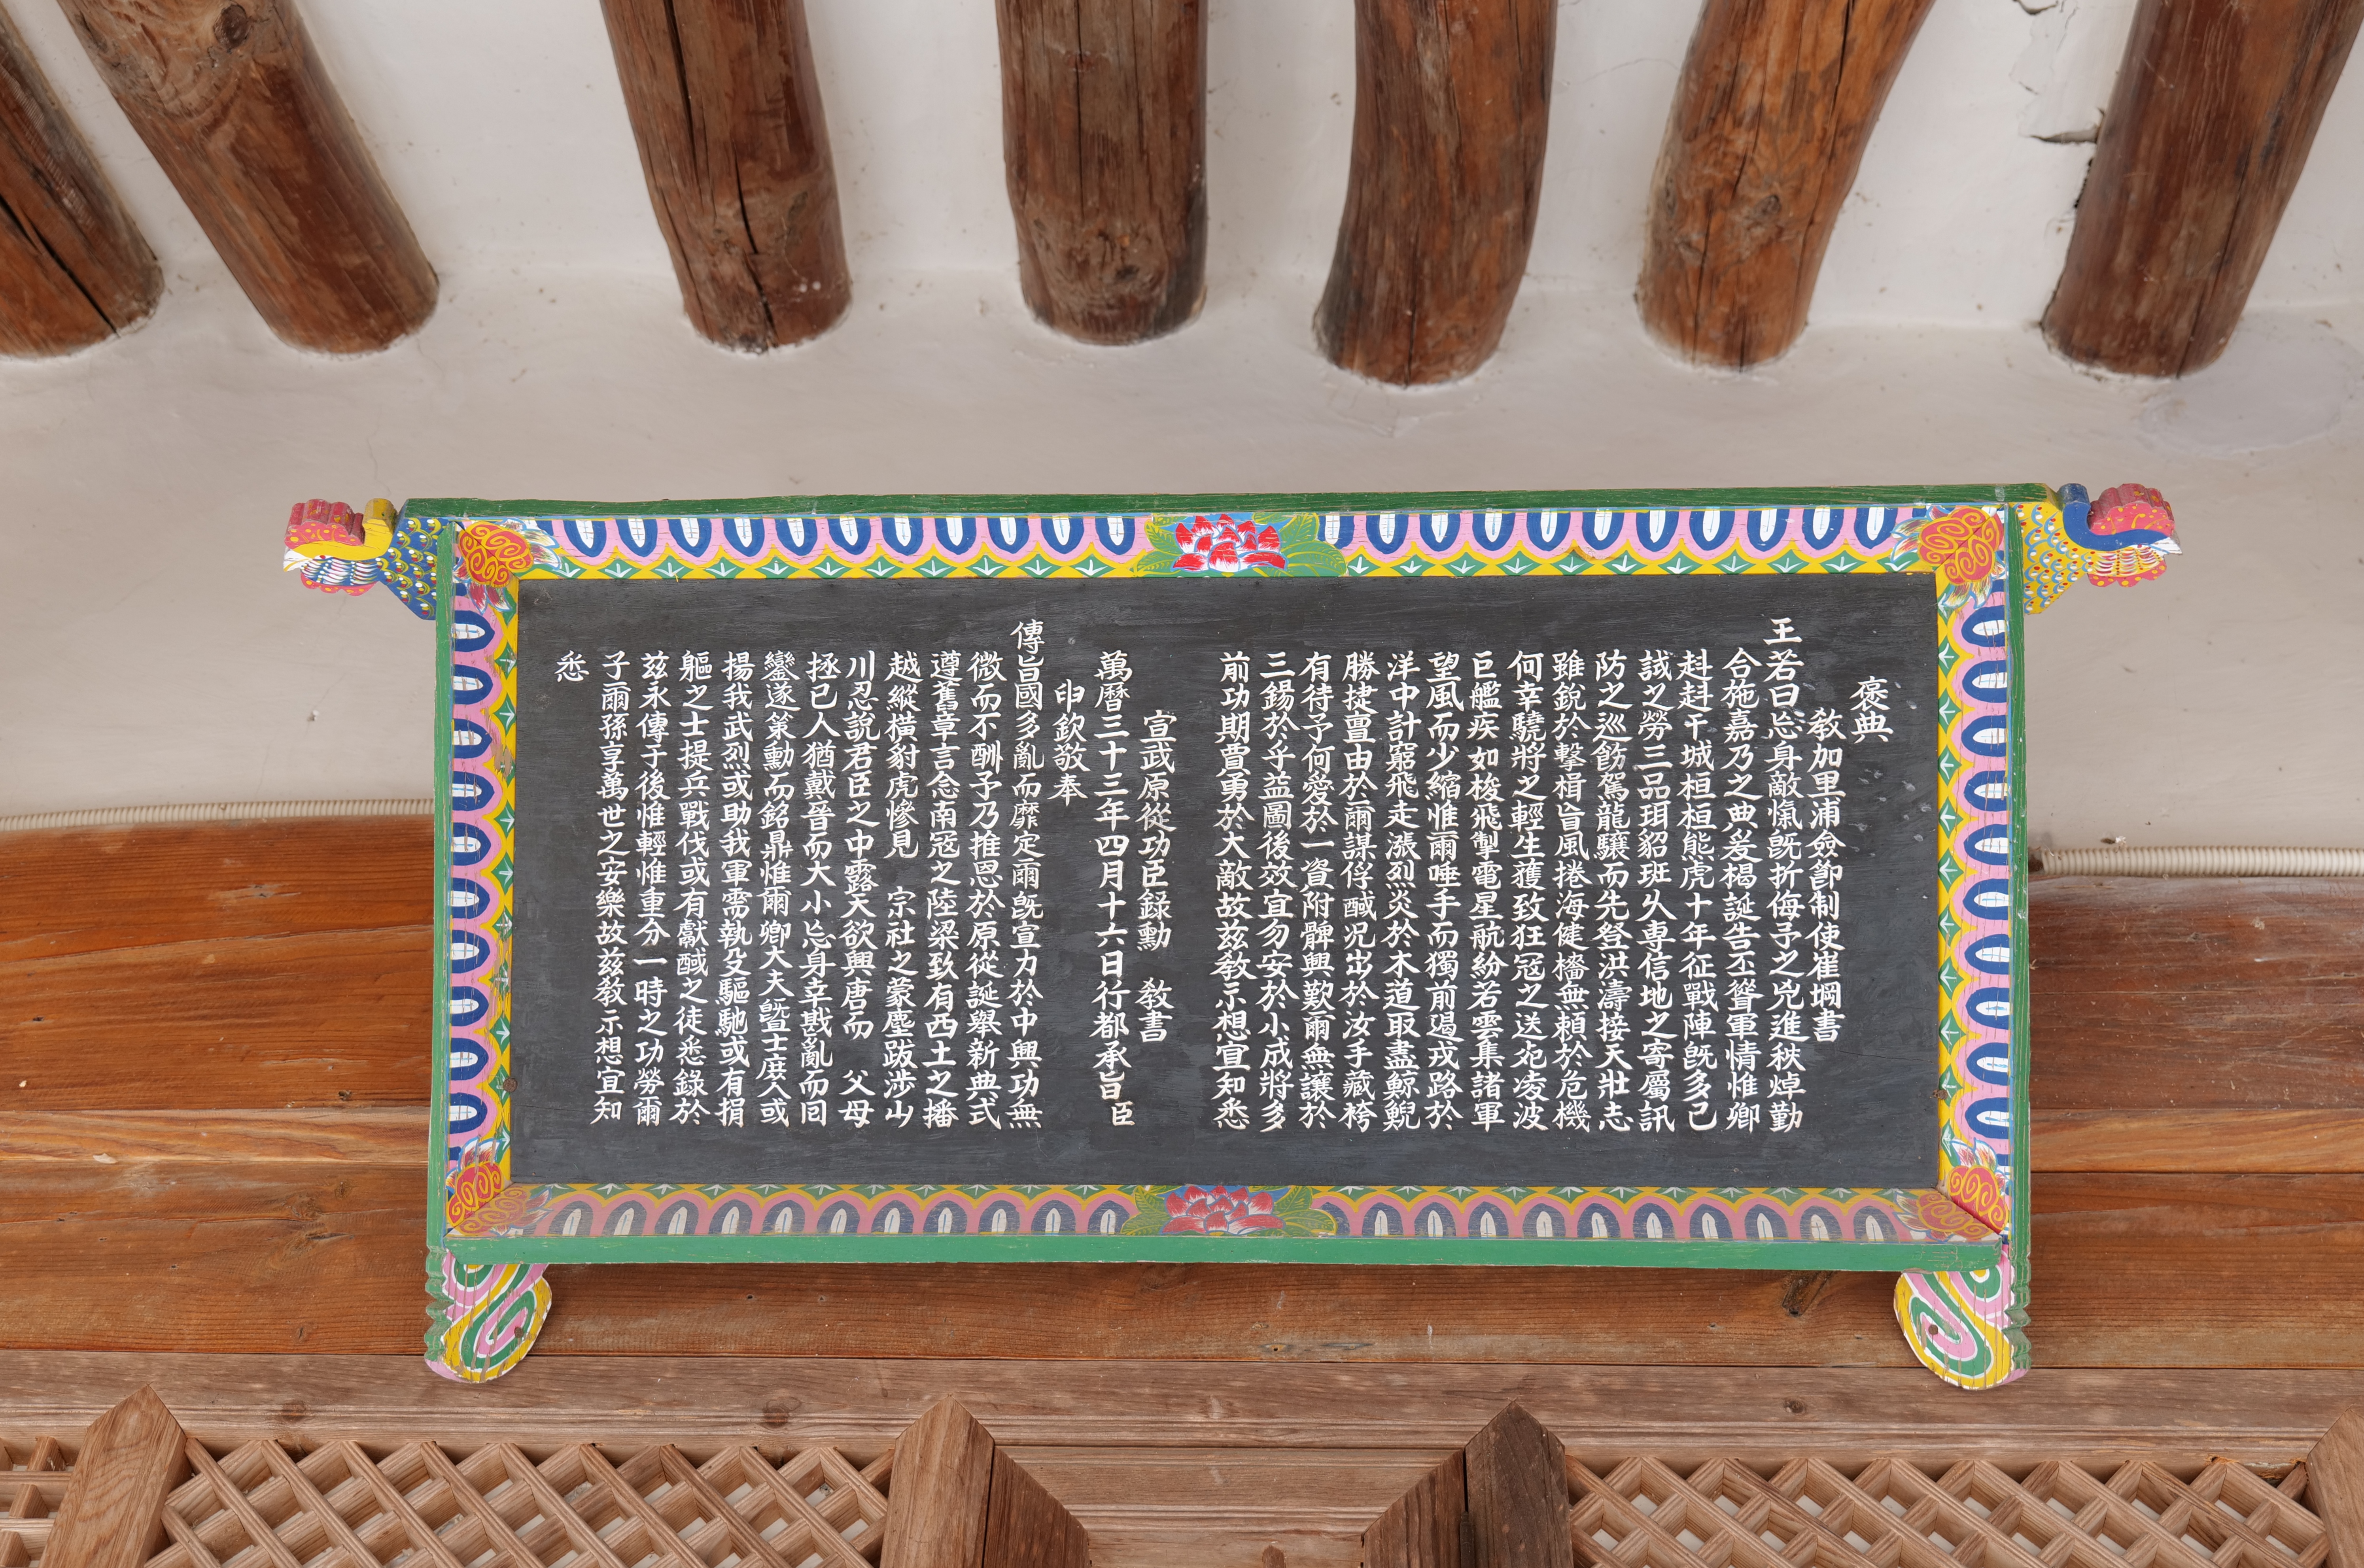 褒典
敎加里浦僉節制使崔堈書
王若曰忘身敵愾旣折侮予之兇進秩焯勤
合施嘉乃之典爰楬誕告丕聳軍情惟卿
赳赳干城桓桓熊虎十年征戰陣旣多已
諴之勞三品珥貂班乆專信地之寄屬訊
防之巡飭駕龍驤而先登洪濤接天壯志
雖銳於擊楫旨風捲海健檣無賴於危機
何幸驍將之輕生獲致狂冦之送死凌波
巨艦疾如梭飛掣電星航紛若雲集諸軍
望風而少縮惟爾唾手而獨前遏戎路於
洋中計窮飛走漲烈炎於木道取盡鯨鯢
勝捷亶由於爾謀俘馘况出於汝手藏袴
有待予何愛於一資附髀興歎爾無讓於
三錫於乎益圖後效宜勿安於小成將多
前功期賈勇於大敵故玆敎示想宜知悉
宣武原從功臣録勳 敎書
萬曆三十三年四月十六日行都承旨臣
申欽敬奉
傳旨國多亂而靡定爾旣宣力於中興功無
微而不酬予乃推恩於原從誕舉新典式
遵舊章言念南冦之陸梁致有西土之播
越縱橫豺虎慘見 宗社之蒙塵跋涉山
川忍說君臣之中露天欲興唐而 父母
拯已人猶戴晉而大小忘身幸戡亂而回
鑾遂策勳而銘鼎惟爾卿大夫曁士庶人或
揚我武烈或助我軍需執殳驅馳或有捐
軀之士提兵戰伐或有獻馘之徒悉錄於
玆永傳于後惟輕惟重分一時之功勞爾
子爾孫享萬世之安樂故玆敎示想宜知
悉